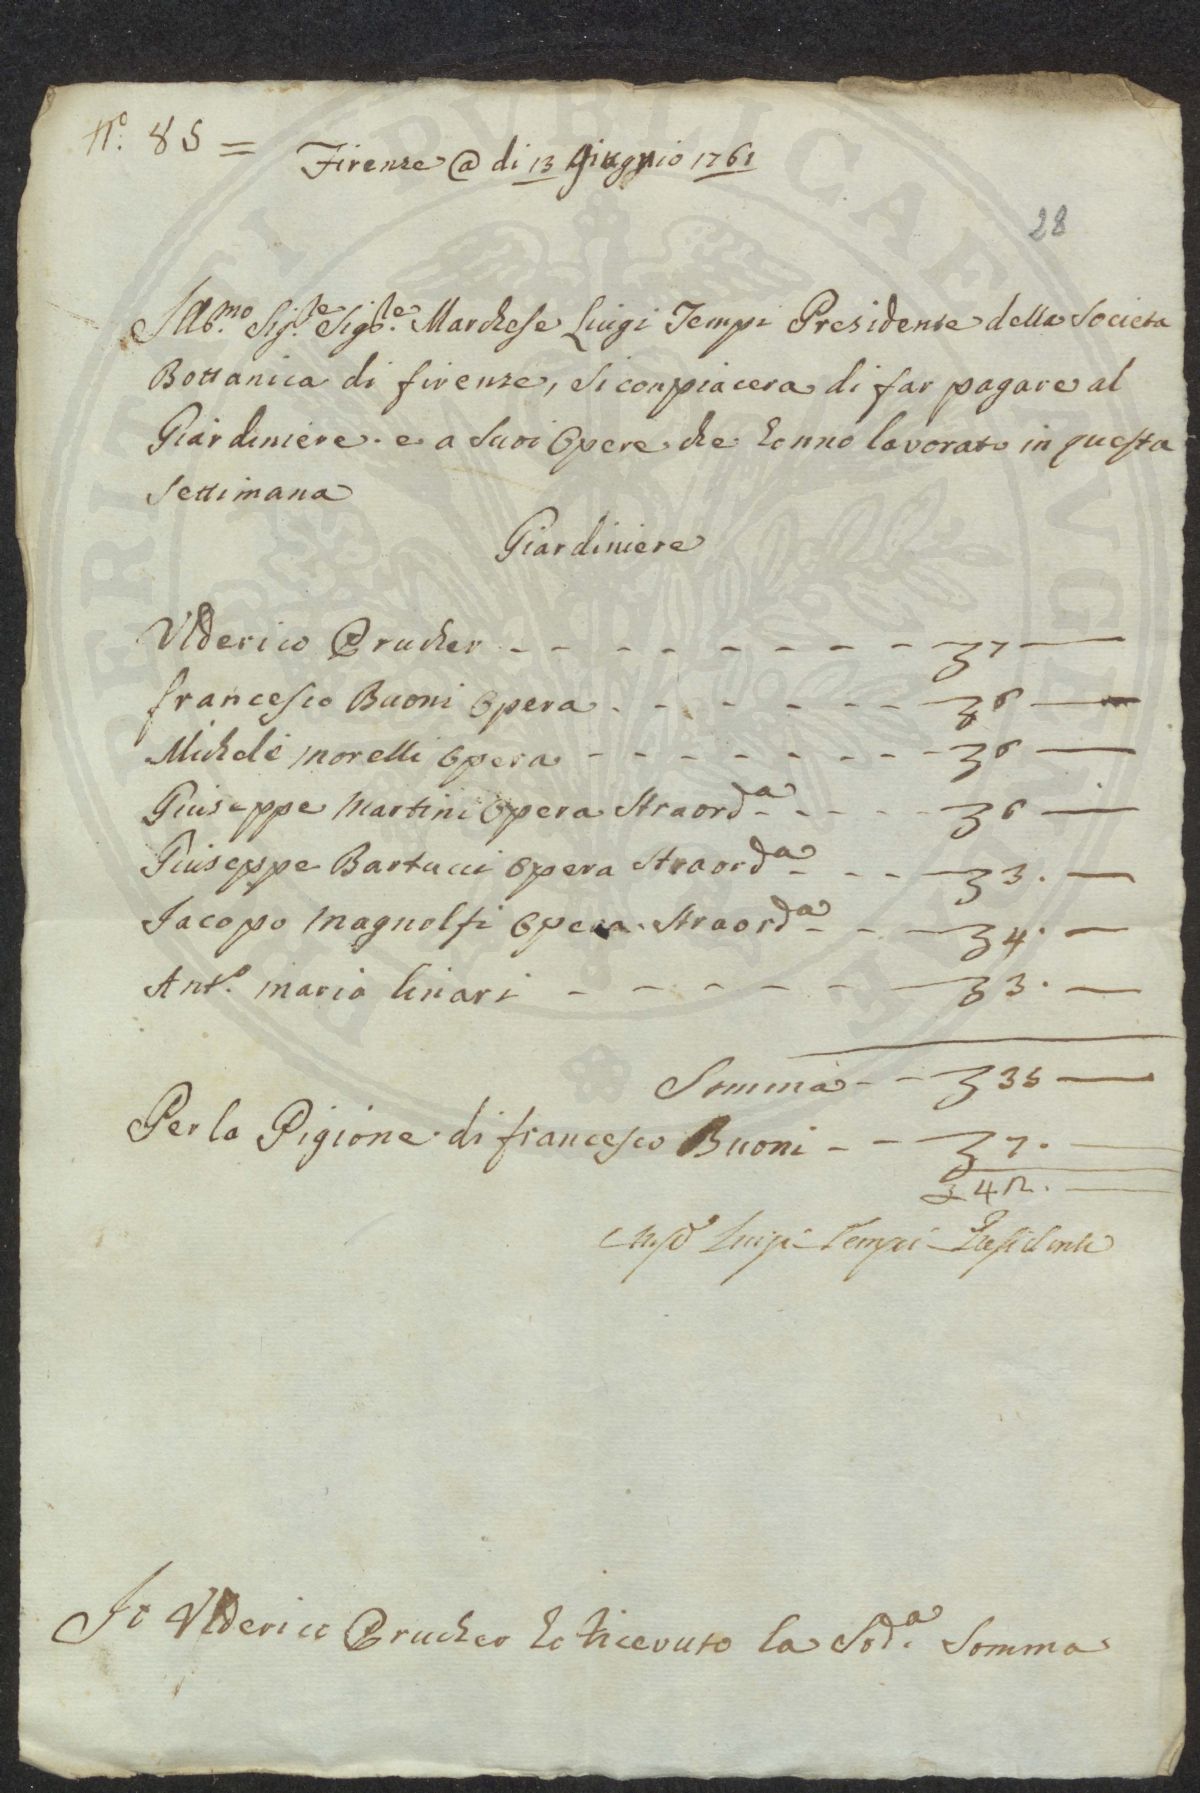 N.º 85 =
Firenze @ di 13 Giugnio 1761
28
Ill.mo Sig.re Sig.re Marchese Luigi Tempi Presidente della Societa
Bottanica di firenze, si conpiacera di far pagare al
Giardiniere e a suoi Opere che hanno lavorato in questa
settimana
Giardiniere
Ulderico Prucher - - - - - - - - - £ 7 —
francesco Buoni Opera - - - - - - - £ 6 —
Michele Morelli Opera - - - - - - - £ 6 —
Giuseppe Martini Opera Straord.a - - - - £ 6 —
Giuseppe Bartucci Opera Straord.a - - - £ 3. —
Jacopo Magnolfi Opera Straord.a - - - £ 4. —
Ant.º maria linari - - - - - - £ 3. —
Somma - - £ 35 —
Per la Pigione di francesco Buoni - - £ 7. —
£ 42. —
Luigi Tempi Presidente
Io Ulderico Prucher ho Ricevuto la Sod.a Somma